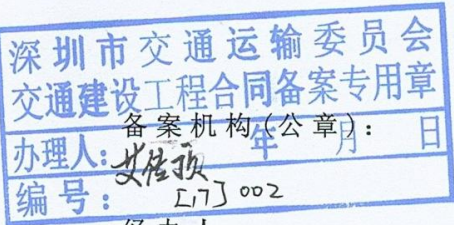 深圳市交通运输委员会
交通建设工程合同备案专用章
备案机构(公章):
办理人: 年 月 日
编号: [17]002